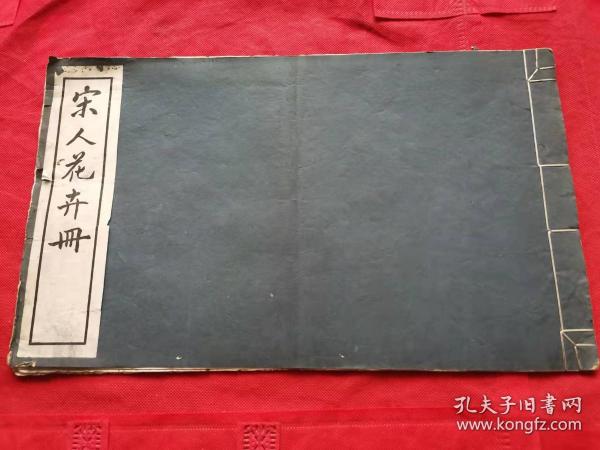 宋人花卉冊
孔夫子旧書网
www.kongfz.com